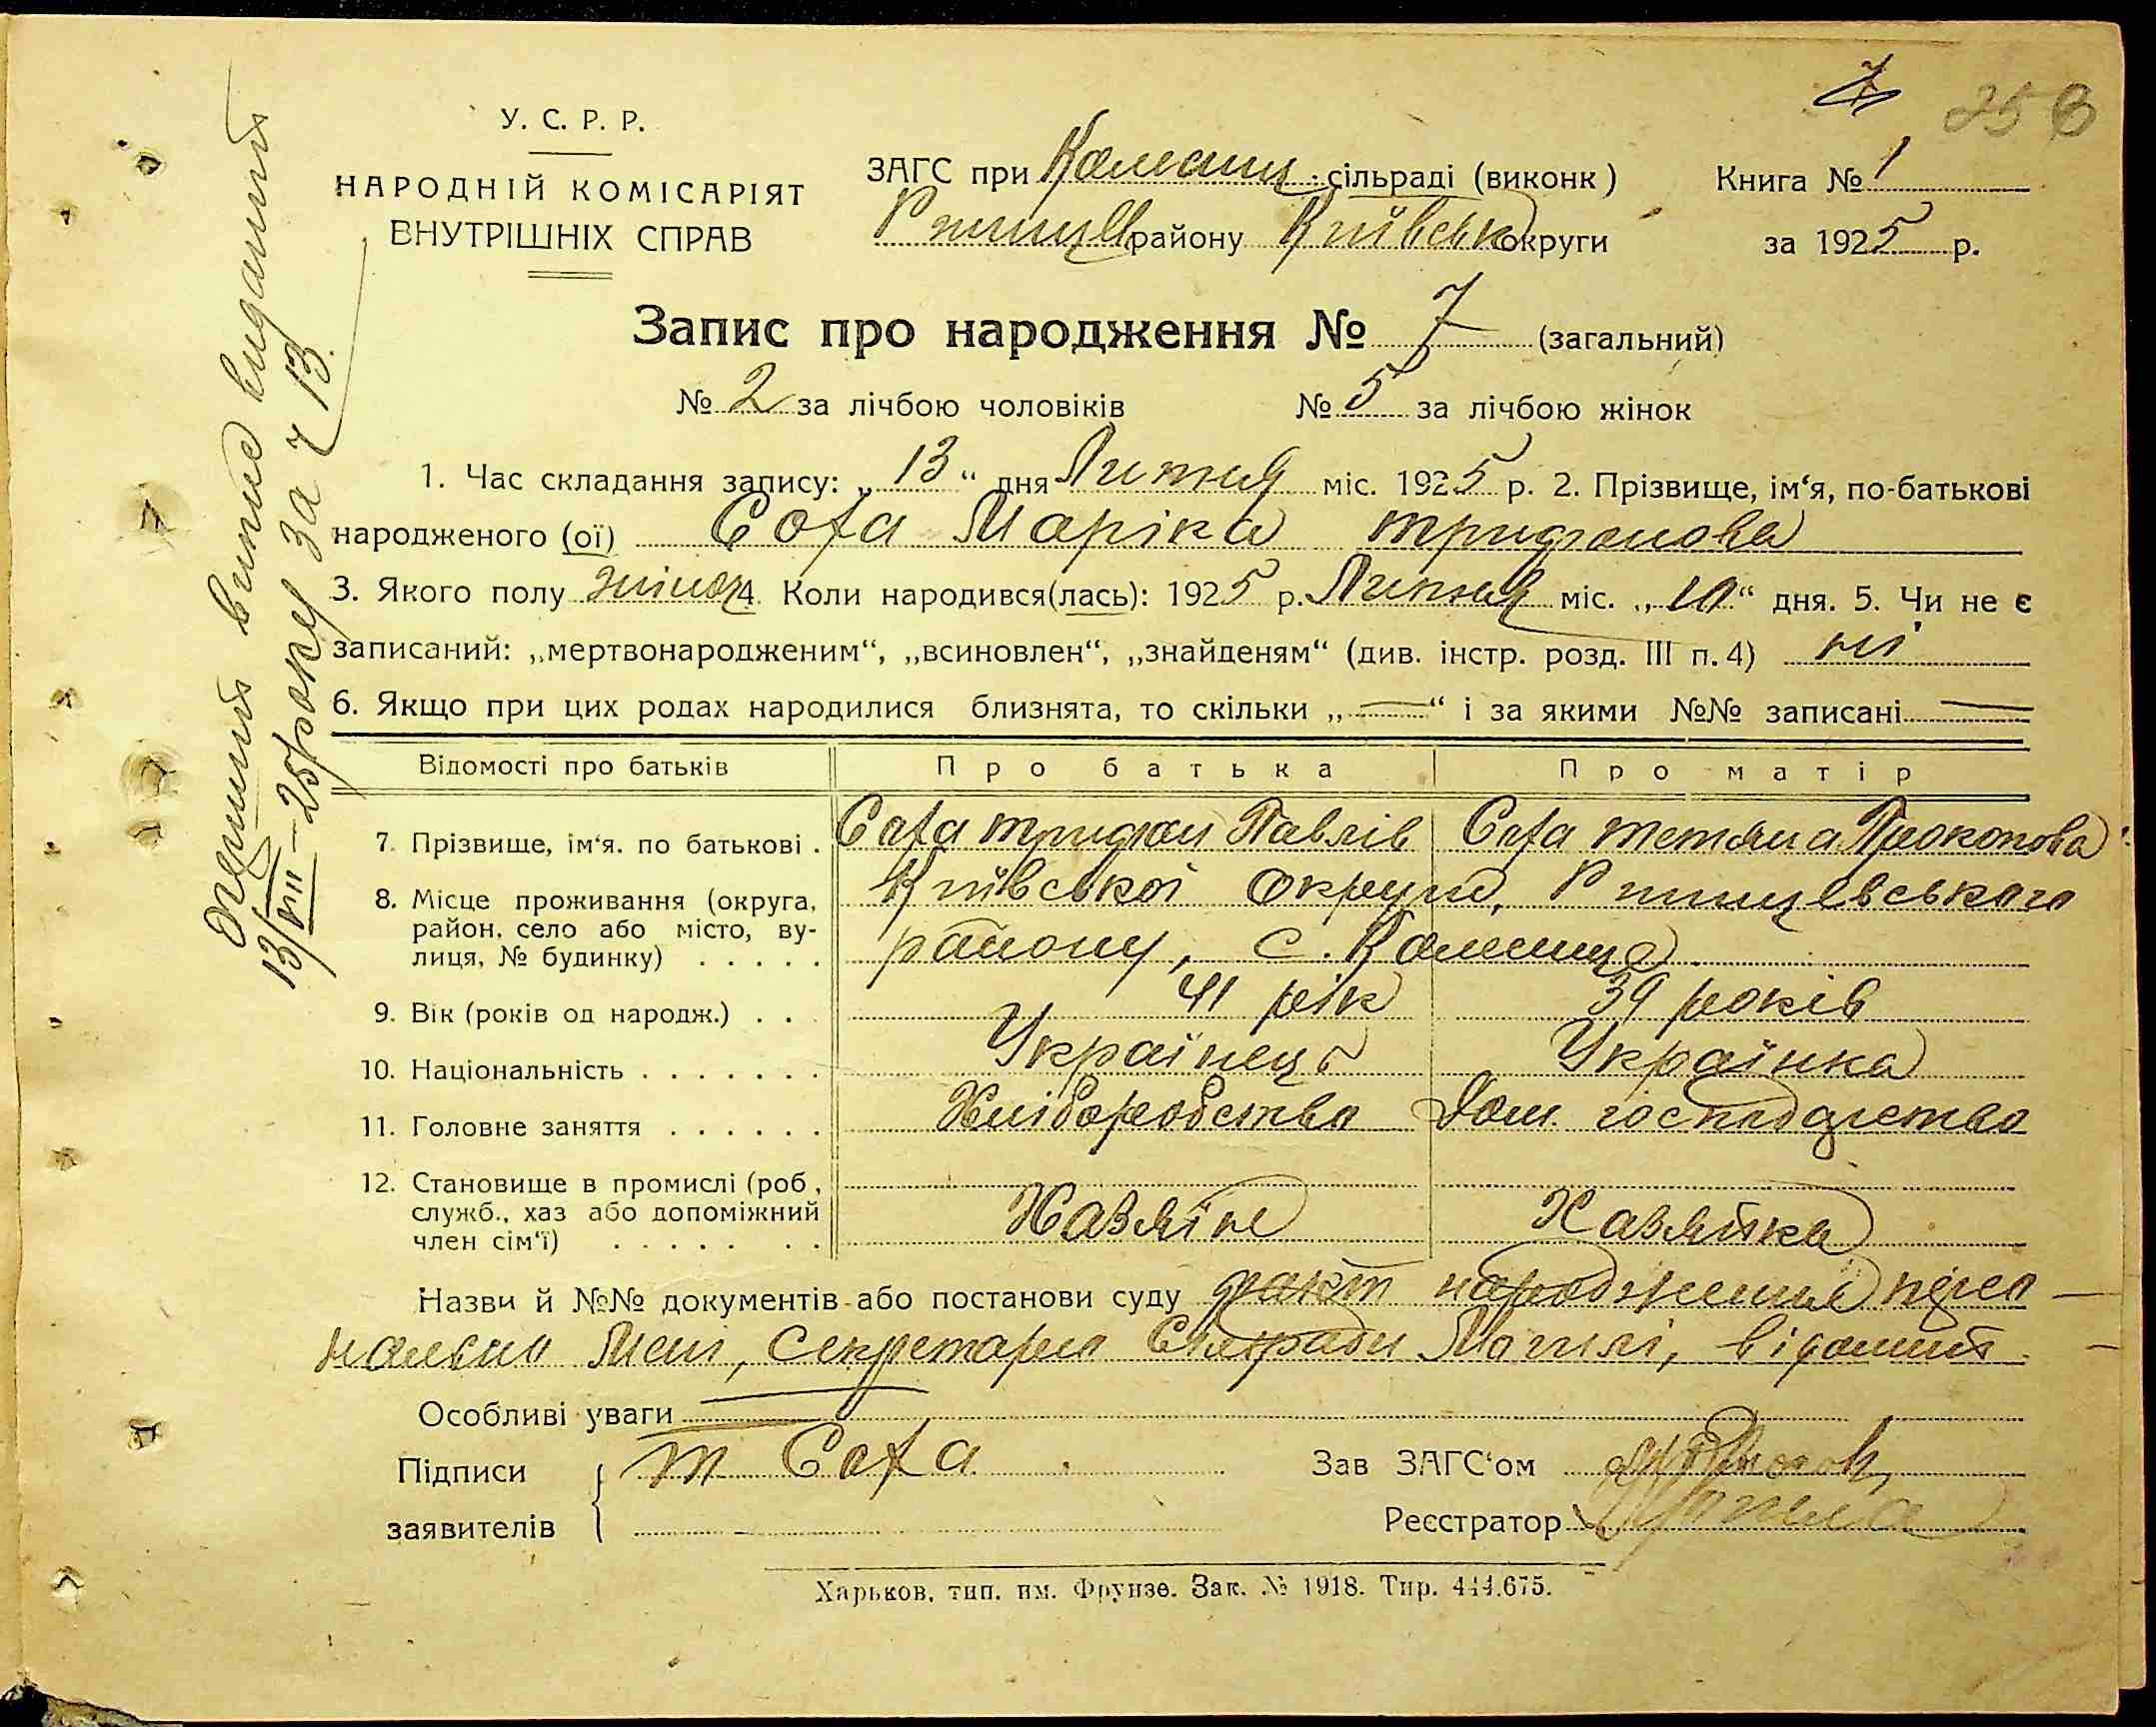 7 256
У. С. Р. Р.
НАРОДНІЙ КОМІСАРІЯТ
ВНУТРІШНІХ СПРАВ
ЗАГС при сільраді (виконк)
району Київськ округи
Книга № 1
за 1925 р.
Запис про народження № 7 (загальний)
№ 2 за лічбою чоловіків № 5 за лічбою жінок
1. Час складання запису: „13“ дня Липня міс. 1925 р. 2. Прізвище, ім‘я, по-батькові
народженого (ої) Сота Маріка Трифонова
3. Якого полу жіноч. 4. Коли народився(лась): 1925 р. Липня міс. „10“ дня. 5. Чи не є
записаний: „мертвонародженим“, „всиновлен“, „знайденям“ (див. інстр. розд. III п. 4) ні
6. Якщо при цих родах народилися близнята, то скільки „—“ і за якими №№ записані —
Відомості про батьків Про батька Про матір
7. Прізвище, ім‘я. по батькові . Сота Трифон Павлів Сота Тетяна Прокопова
8. Місце проживання (округа, район, село або місто, ву-лиця, № будинку) . . . . . Київської округи, Ржищевського
району, с.
9. Вік (років од народж.) . . 41 рік 39 років
10. Національність . . . . . . . Українець Українка
11. Головне заняття . . . . . . Хліборобство Дом. господарство
12. Становище в промислі (роб, служб., хаз або допоміжний член сім‘ї) . . . . . . . Хазяїн Хазяйка
Назви й №№ документів або постанови суду факт народження персо-
нально мені, секретарю Сільради Могилі, відомий.
Особливі уваги —
Підписи Т Сота Зав ЗАГС‘ом
заявителів Реєстратор Могила
Харьков, тип. им. Фрунзе. Зак. № 1918. Тир. 444.675.
Перший випис виданий
13/VII–25 року за ч 13.